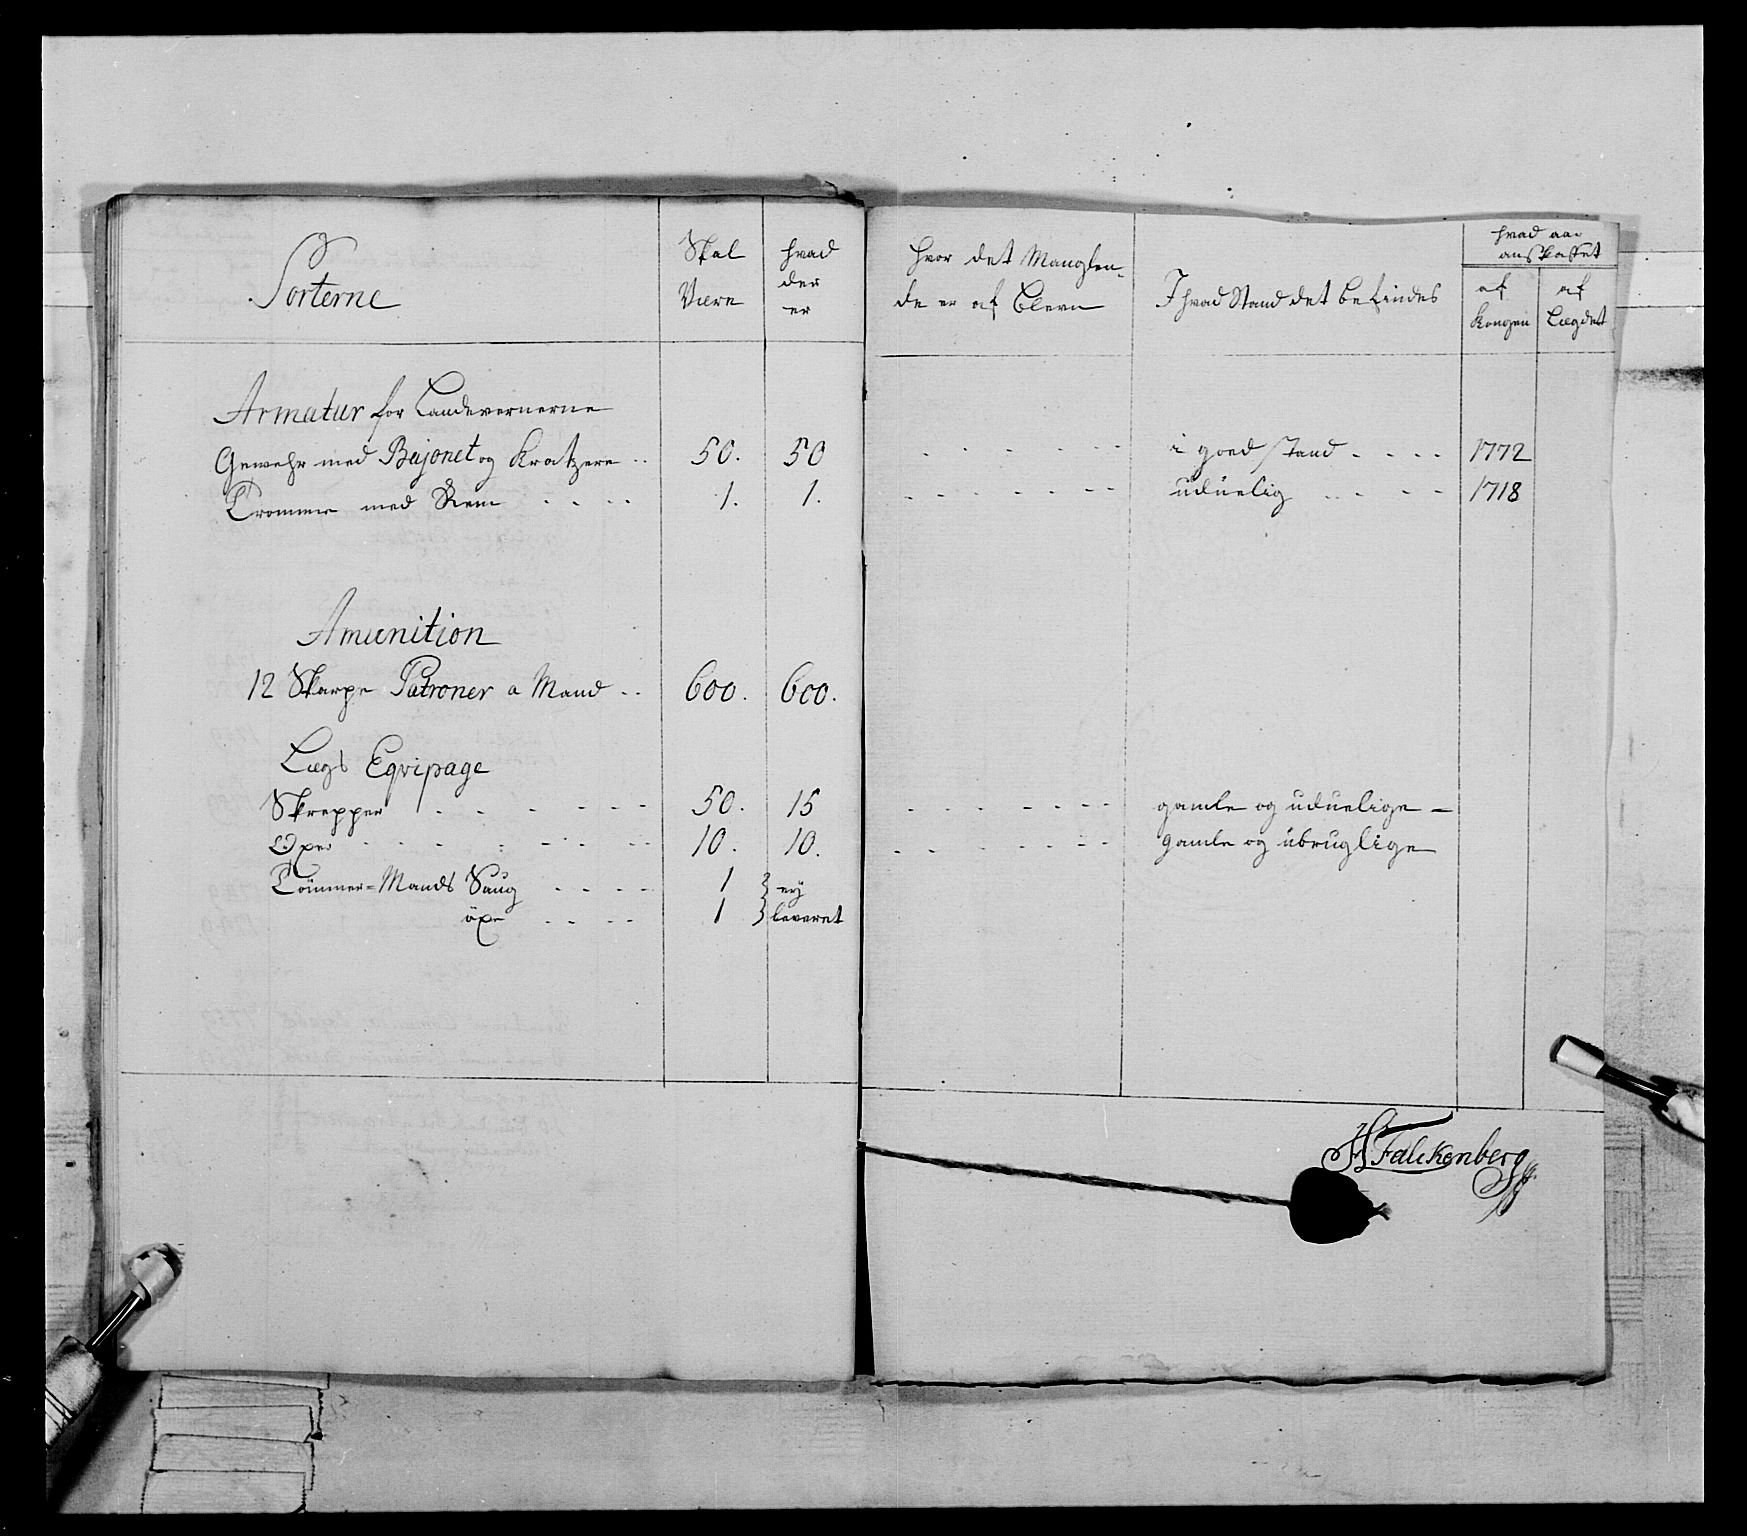 Sorterne | Skal Være | hvad der er | hvor det Manglen- de er af bleven | I hvad Stand det befindes | hvad aar anskaffet | af Kongen | af Lægdet
Armatur for Landeværnerne
Gewehr med Bajonet og Kratzere | 50. | 50 | i goed stand | 1772
Tromme med Rem | 1. | 1. | uduelig | 1718
Amunition
12 Skarpe Patroner a Mand | 600. | 600.
Lægs Eqvipage
Skrepper | 50. | 15 | gamle og uduelige
Øxer | 10. | 10. | gamle og ubruglige
Tömmer=Mands Saug | 1 | ey
öxe | 1 | leveret
H Falckenberg